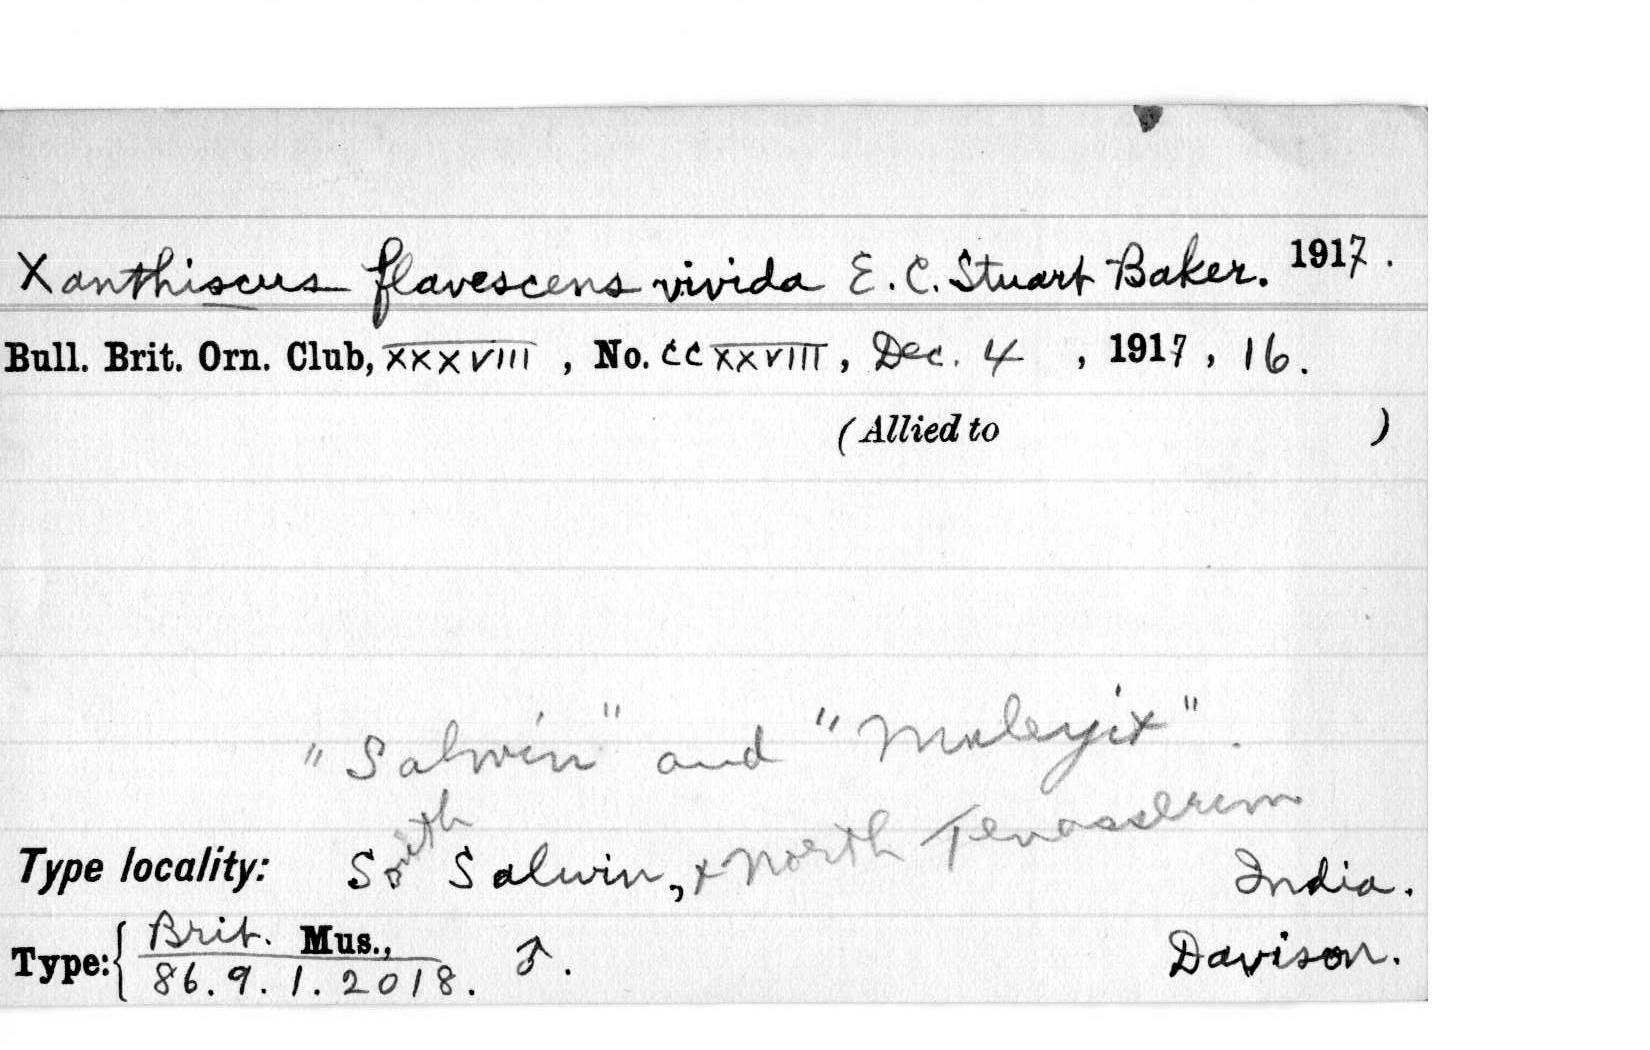 Xanthiscus flavescens vivida E. C. Stuart Baker. 1917.
Bull. Brit. Orn. Club, XXXVIII, No. CCXXVIII, Dec. 4, 1917, 16.
(Allied to )
"Salwin" and "Muleyit".
Type locality: South Salwin, & North Tenasserim India.
Type: { Brit. Mus., ♂. Davison.
86.9.1.2018.